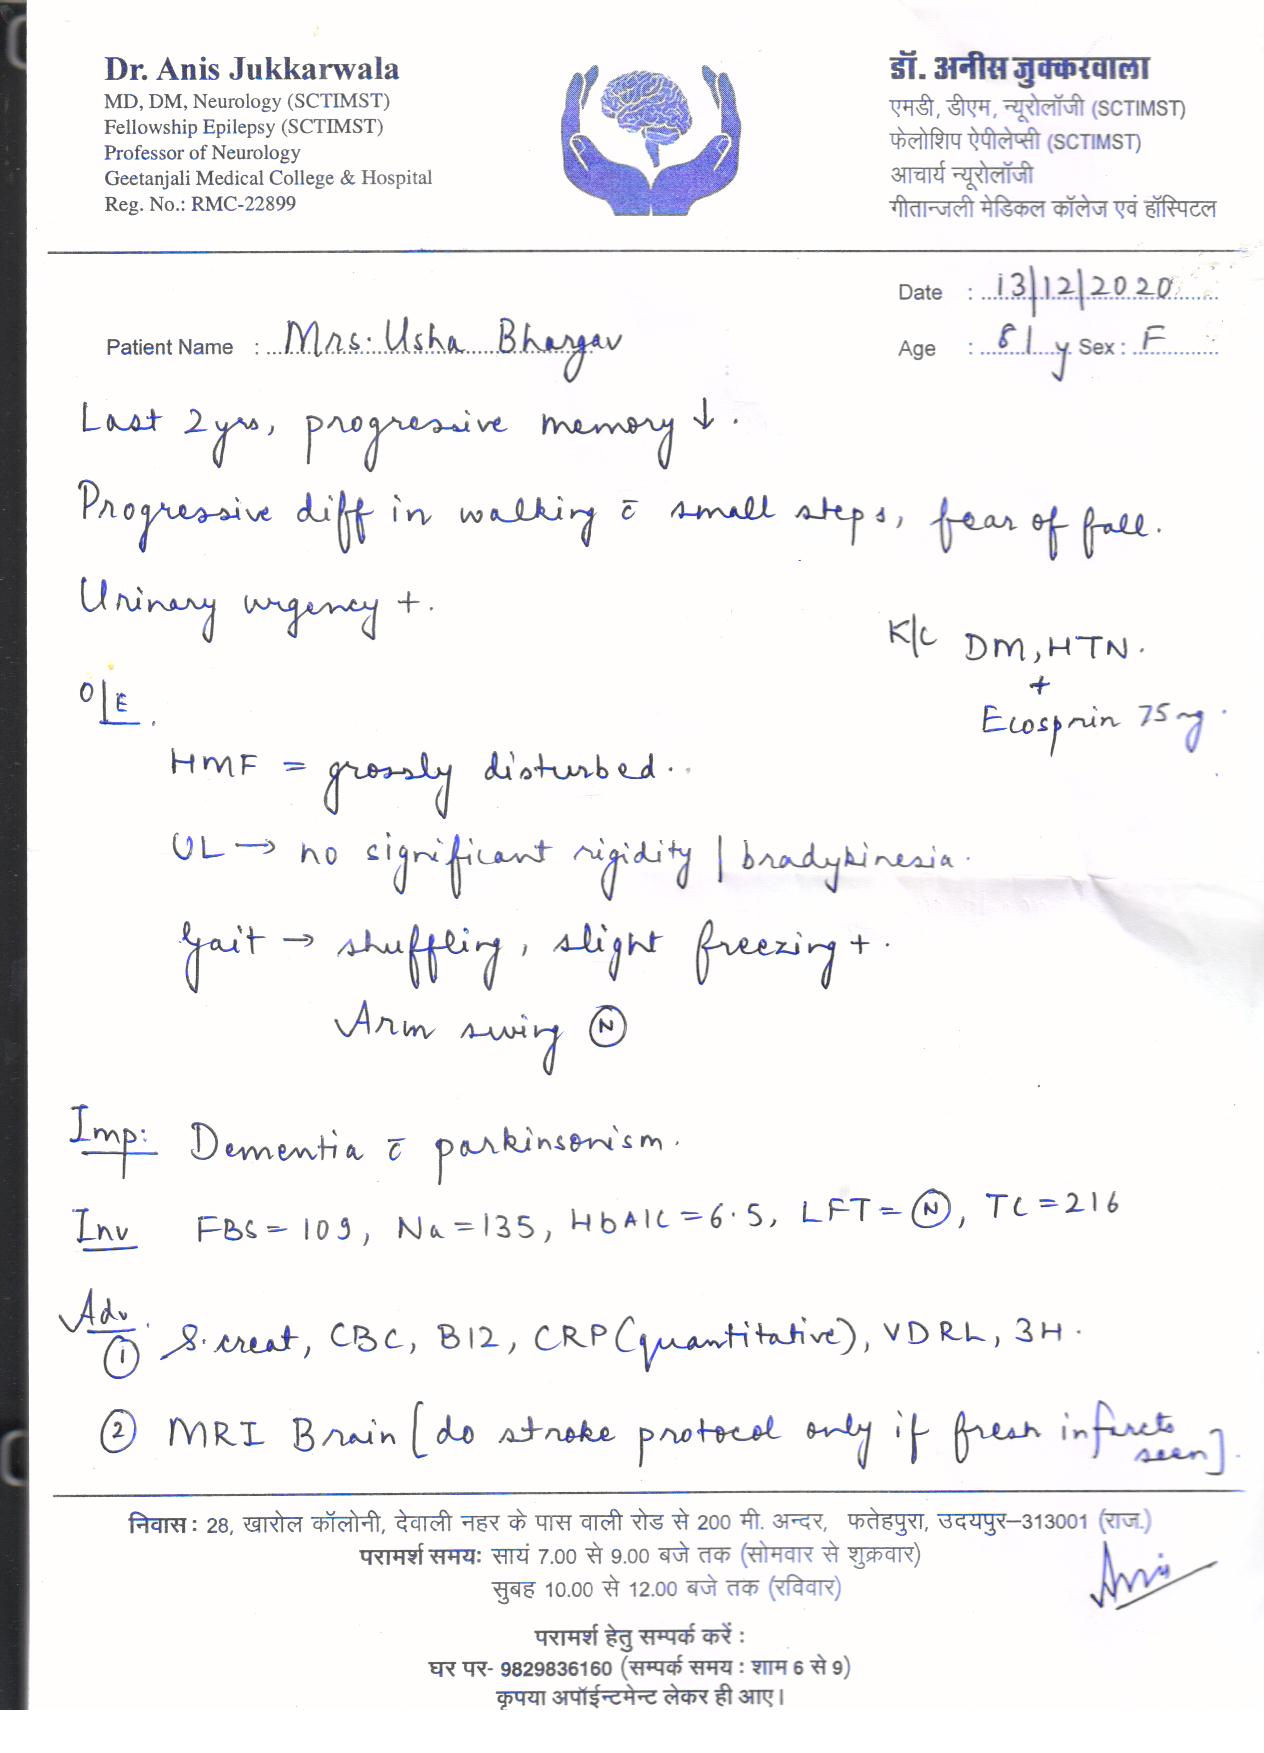 Dr. Anis Jukkarwala
MD, DM, Neurology (SCTIMST)
Fellowship Epilepsy (SCTIMST)
Professor of Neurology
Geetanjali Medical College & Hospital
Reg. No.: RMC-22899
डॉ. अनीस जुक्करवाला
एमडी, डीएम, न्यूरोलॉजी (SCTIMST)
फेलोशिप ऐपीलेप्सी (SCTIMST)
आचार्य न्यूरोलॉजी
गीतान्जली मेडिकल कॉलेज एवं हॉस्पिटल
Date : 13/12/2020
Patient Name : Mrs. Usha Bhargav
Age : 81 y Sex : F
Last 2 yrs, progressive memory ↓.
Progressive diff in walking c̄ small steps, fear of fall.
Urinary urgency +.
K/c DM, HTN.
+
Ecosprin 75 mg.
O/E.
HMF = grossly disturbed.
UL → no significant rigidity / bradykinesia.
Gait → shuffling, slight freezing +.
Arm swing Ⓝ
Imp: Dementia c̄ parkinsonism.
Inv FBS = 109, Na = 135, HbA1C = 6.5, LFT = Ⓝ, TC = 216
Adv.
① S. creat, CBC, B12, CRP (quantitative), VDRL, 3H.
② MRI Brain [do stroke protocol only if fresh infarcts seen].
निवास : 28, खारोल कॉलोनी, देवाली नहर के पास वाली रोड से 200 मी. अन्दर, फतेहपुरा, उदयपुर–313001 (राज.)
परामर्श समयः सायं 7.00 से 9.00 बजे तक (सोमवार से शुक्रवार)
सुबह 10.00 से 12.00 बजे तक (रविवार)
Anis
परामर्श हेतु सम्पर्क करें :
घर पर- 9829836160 (सम्पर्क समय : शाम 6 से 9)
कृपया अपॉईन्टमेन्ट लेकर ही आए।